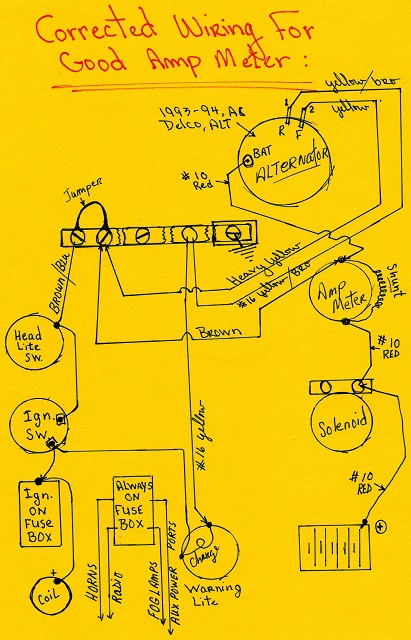 Corrected Wiring For
Good Amp Meter:
yellow/bro
yellow
1993-94, AC
Delco, ALT
1
2
R
F
BAT
ALTERNATOR
#10
Red
Jumper
Heavy yellow
#16 yellow/BRO
BROWN/Blu
Brown
Shunt
Amp
Meter
#10
RED
Head
Lite
SW.
Ign.
SW.
#16 yellow
Solenoid
#10
RED
+
Ign.
ON
FUSE
BOX
ALWAYS
ON
FUSE
BOX
HORNS
Radio
FOG LAMPS
AUX POWER PORTS
Charge
Warning
Lite
+
Coil